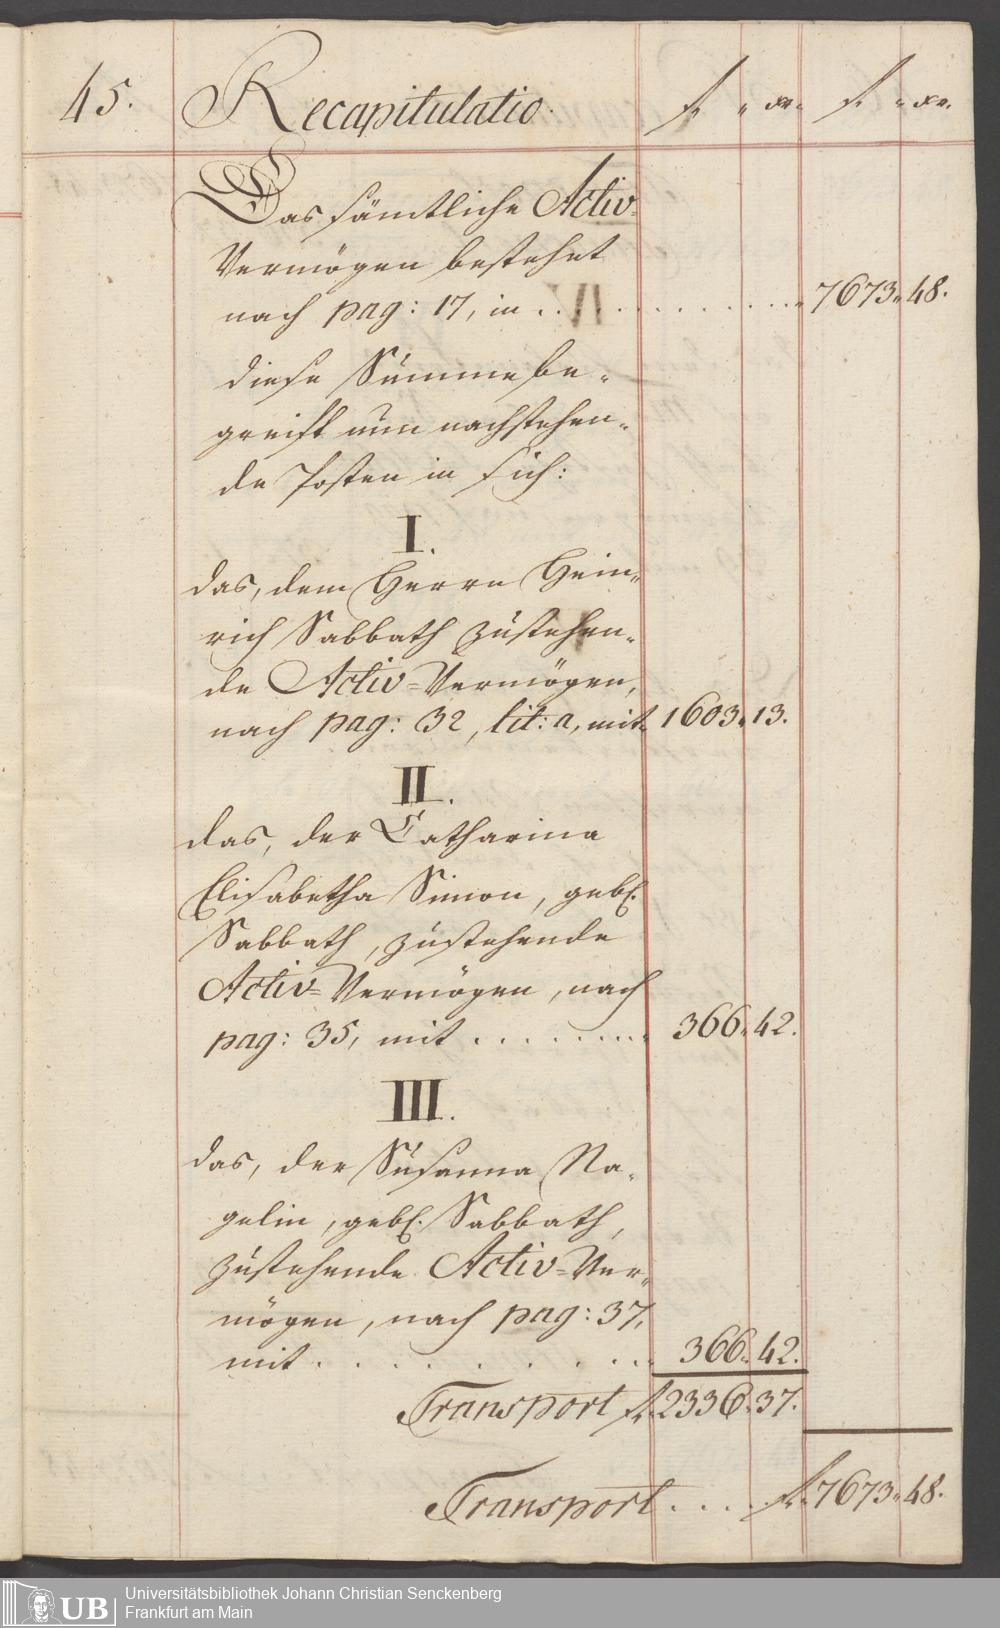 45. Recapitulatio. f. " xr. f. " xr.
Das sämtliche Activ=
Vermögen bestehet
nach pag: 17, in . . . . . . . . . . 7673 " 48.
diese Summe be"
greift nun nachstehen"
de Posten in sich:
I.
das, dem Herrn Hein"
rich Sabbath zustehen"
de Activ=Vermögen,
nach pag: 32, lit: a, mit 1603 " 13.
II.
das, der Catharina
Elisabetha Simon, gebr.
Sabbath, zustehende
Activ=Vermögen, nach
pag: 35, mit . . . . . . . . 366 " 42.
III.
das, der Susanna Na"
gelin, gebr. Sabbath,
zustehende Activ=Ver"
mögen, nach pag: 37,
mit . . . . . . . . . 366 " 42.
Transport f. 2336 " 37.
Transport . . . . f. 7673 " 48.
UB
Universitätsbibliothek Johann Christian Senckenberg
Frankfurt am Main